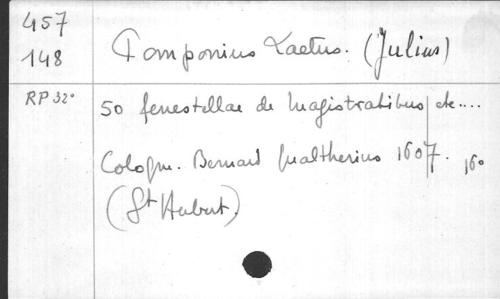 457
148
Pomponius Laetus. (Julius)
RP 32°
50 fenestellae de Magistratibus etc....
Cologne. Bernard Gualtherius 1607. 16°
(St Hubert)